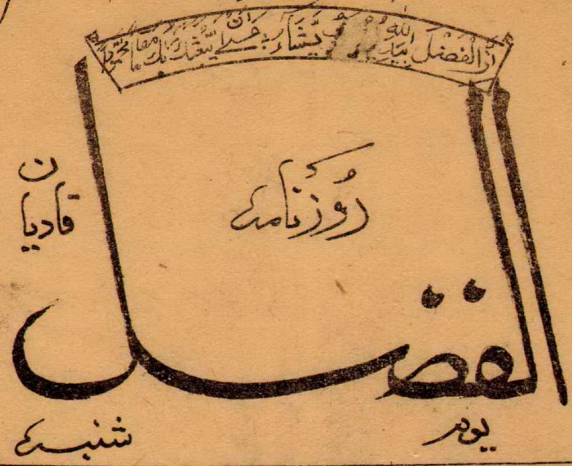 اِنَّ الْفَضْلَ بِيَدِ اللّٰهِ يَّشَآءُ عَسٰٓى اَنْ يَّبْعَثَكَ رَبُّكَ مَقَامًا مَّحْمُوْدًا
رُوزنامہ
قادیان
الفضل
یوم شنبہ